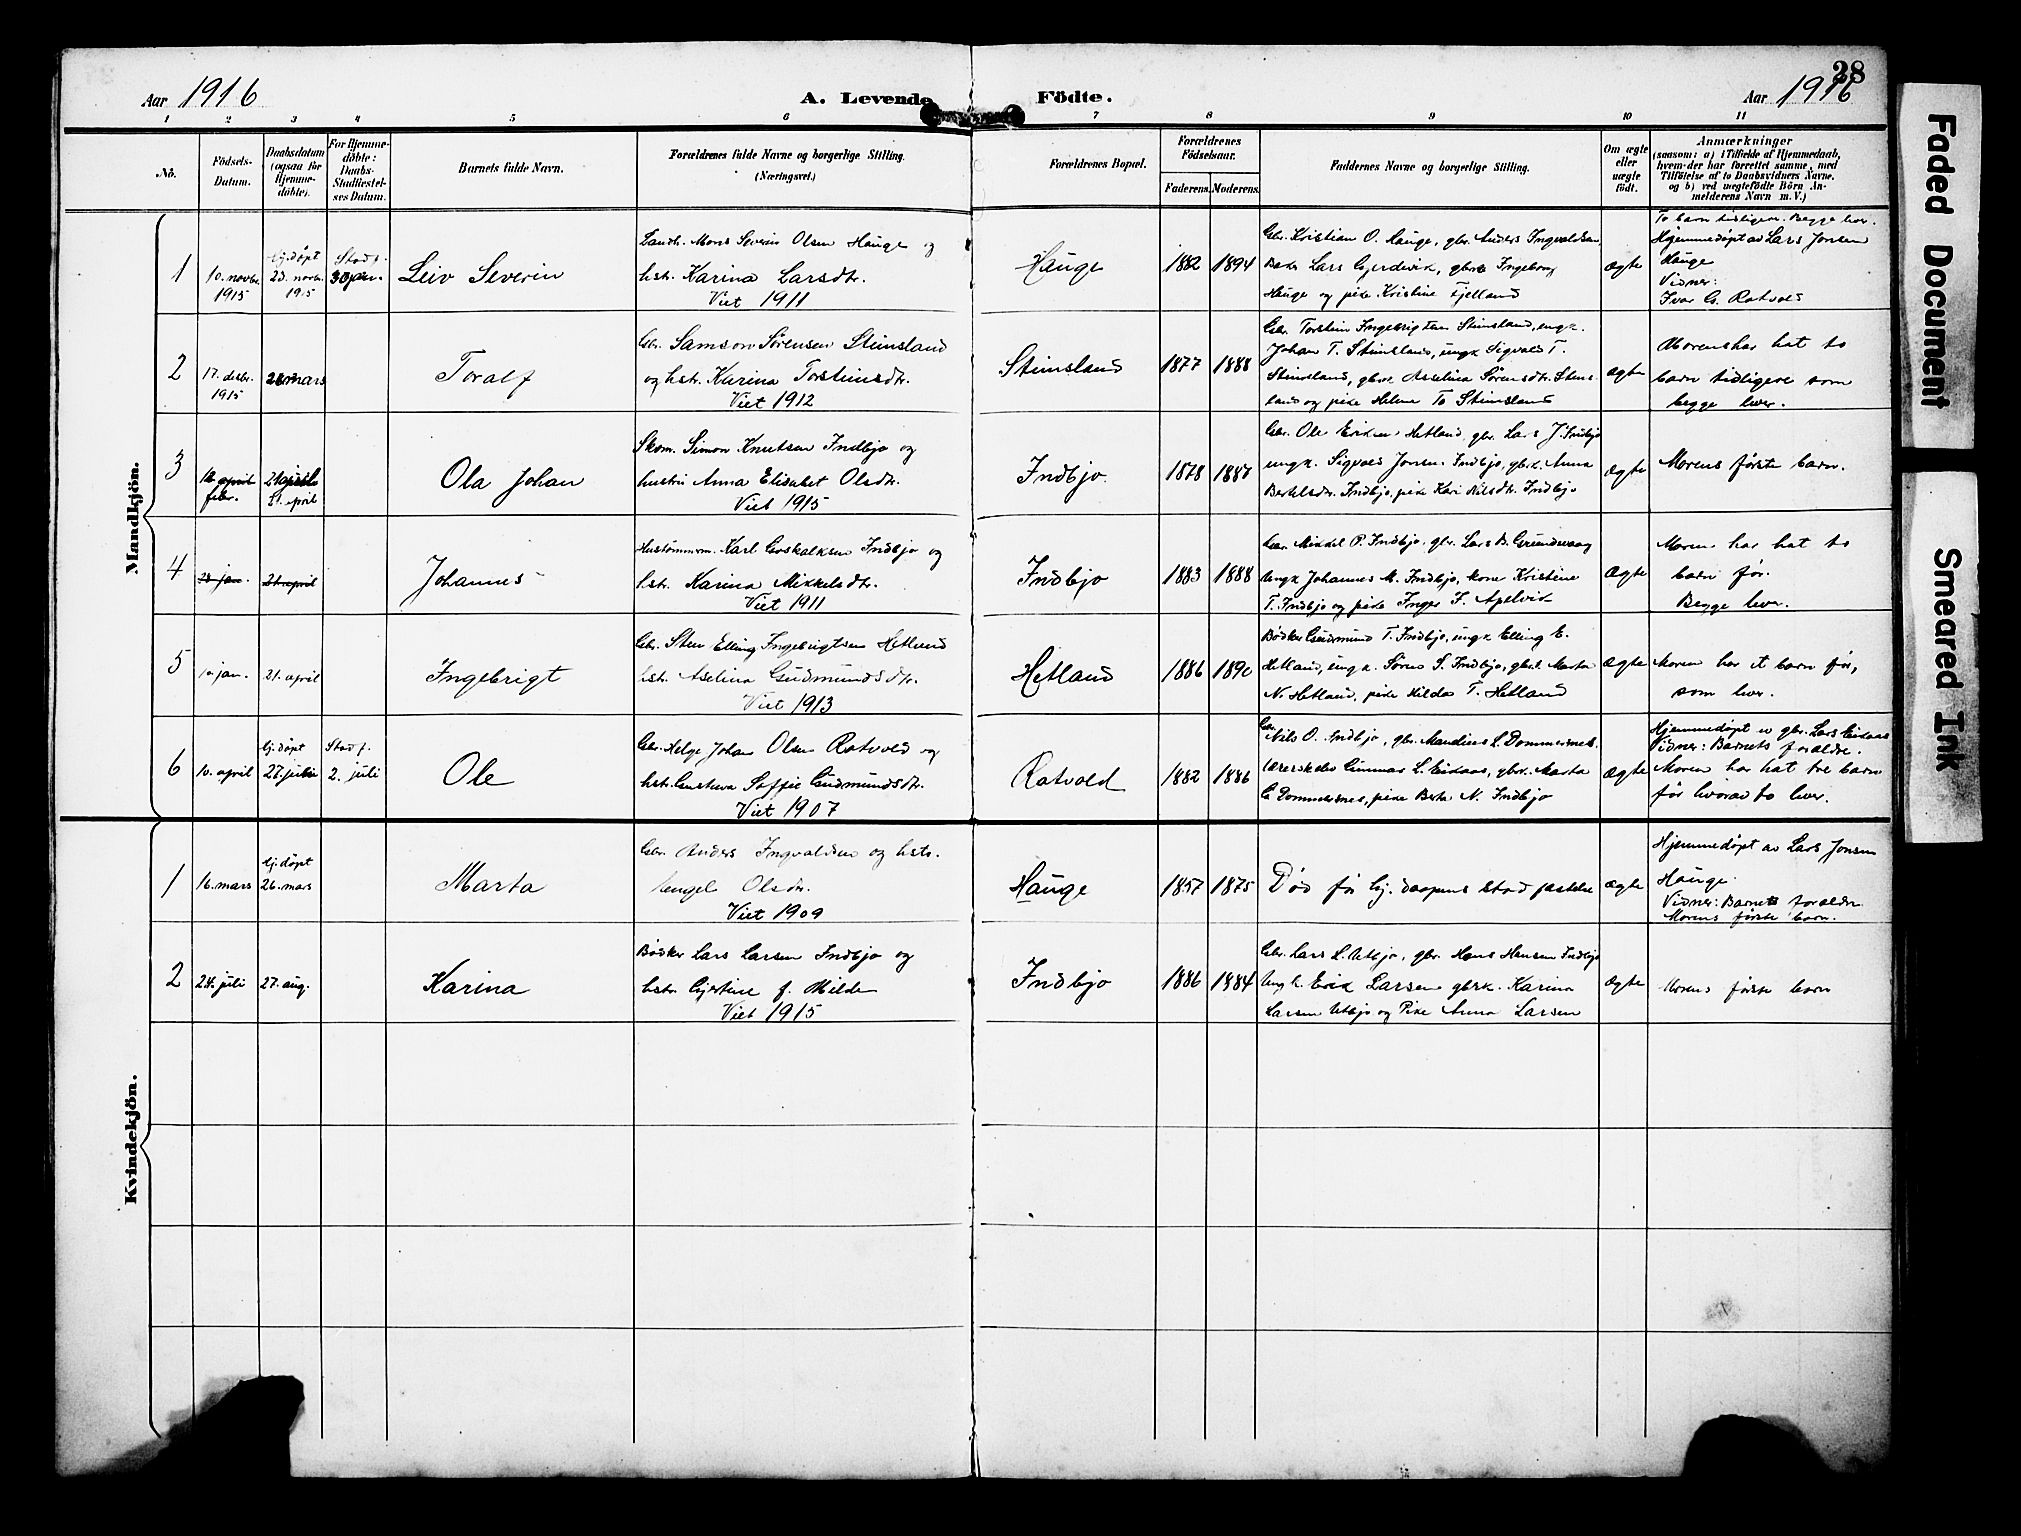 28
Aar 1916
A. Levende Födte.
Aar 1916
1 2 3 4 5 6 7 8 9 10 11
No.
Födsels-
Datum.
Daabsdatum
(ogsaa for
Hjemme-
döbte).
For Hjemme-
döbte:
Daabs-
Stadfæstel-
ses Datum.
Barnets fulde Navn.
Forældrenes fulde Navne og borgerlige Stilling.
(Næringsvei.)
Forældrenes Bopæl.
Forældrenes
Födselsaar.
Faderens. Moderens.
Faddernes Navne og borgerlige Stilling.
Om ægte
eller
uægte
födt.
Anmærkninger
(saasom: a) i Tilfælde af Hjemmedaab,
hvem der har forrettet samme, med
Tilföielse af to Daabsvidners Navne.
og b) ved uægtefödte Börn An-
melderens Navn m. V.)
Mandkjön.
1
10. novbr.
1915
hj.døpt
23. novbr.
1915
Stadf.
30 jan.
Leiv Severin
Mons Severin Olsen Hauge og
hstr. Karina Larsdtr.
Viet 1911
Hauge
1882
1894
Gbr. Kristian O. Hauge, gbr. Anders Ingvaldsen,
Lars Gjerdevik, gbrk Ingeborg
Hauge og pike Kristine Fjelland
ægte
To barn tidligere. Begge lever.
Hjemmedøpt av Lars Jonsen
Hauge
Vidner:
Ivar G. Ratvold
2
17. desbr.
1915
26 mars
Toralf
Gbr. Samson Sørensen Stensland
og hstr. Karina Torsteinsdtr.
Viet 1912
Stensland
1877
1888
Gbr. Torstein Ingebrigtsen Stensland, ungk.
Johan T. Stensland, ungk Sigvald T.
Stensland, gbrk Asselina Sørensdtr. Stens-
land og pike Helene To Stensland
ægte
Moren har hat to
barn tidligere som
begge lever.
3
febr.
21. april
Ola Johan
Skom. Simon Knutsen Indbjo og
hustru Anna Elisabet Olsdtr.
Viet 1915
Indbjo.
1878
1887
Gbr. Ole Eriksen Hetland, gbr. Lars J. Indbjo
ungk. Sigvald Jonsen Indbjo, gbrk. Anna
Bertelsdtr. Indbjo, pike Kari Nilsdtr. Indbjo
ægte
Morens første barn.
4
23 jan.
21. april
Johannes
Hustømmerm. Karl Goskalksen Indbjo og
hstr. Karina Mikkelsdtr.
Viet 1911
Indbjo
1883
1888
Gbr. Mikkel P. Indbjo, gbr. Lars B. Grundevaag
Ungk Johannes M. Indbjo, kone Kristine
T. Indbjo og pike Inger S. Apelvik
ægte
Moren har hat to
barn før.
Begge lever.
5
10 jan.
21. april
Ingebrigt
Gbr. Sten Elling Ingebrigtsen Hetland
hstr. Aselina Gudmundsdtr.
Viet 1913
Hetland
1886
1890
Bødker Gudmund T. Indbjo, ungk Elling E.
Hetland, ungk. Søren S. Indbjo, gbrk. Marta
N. Hetland, pike Hilda T. Hetland
ægte
Moren har et barn før,
som lever.
6
10. april
hj.døpt
27. juni
Stadf.
2. juli
Ole
Gbr. Helge Johan Olsen Ratvold og
hstr. Gustava Soffie Gudmundsdtr.
Viet 1907
Ratvold
1882
1886
Gbr Nils O. Indbjo, gbr. Mandius L. Dommersnes.
Lærerskelev Gunnar L. Eidaas, gbrk. Marta
G Dommersnes, pike Berta N. Indbjo
ægte
Hjemmedøpt av gbr. Lars Eidaas
Vidner: Barnets forældre.
Moren har hat tre barn
før hvorav to lever.
Kvindekjön.
1
16. mars
hj.døpt
26. mars
Marta
Gbr. Anders Ingvaldsen og hstr.
Engel Olsdtr.
Viet 1909
Hauge
1857
1875
Død før hj. daapens stadfæstelse
ægte
Hjemmedøpt av Lars Jonsen
Hauge.
Vidner: Barnets forældre
Morens første barn.
2
24. juli
27. aug.
Karina
Bødker Lars Larsen Indbjo og
hstr. Gjertine f. Milde
Viet 1915
Indbjo
1886
1884
Gbr. Lars L. Utbjo, gbr. Hans Hansen Indbjo
Ungk. Erik Larsen gbrk. Karina
Larsen Utbjo og Pike Anna Larsen
ægte
Morens første barn
Faded Document
Smeared Ink